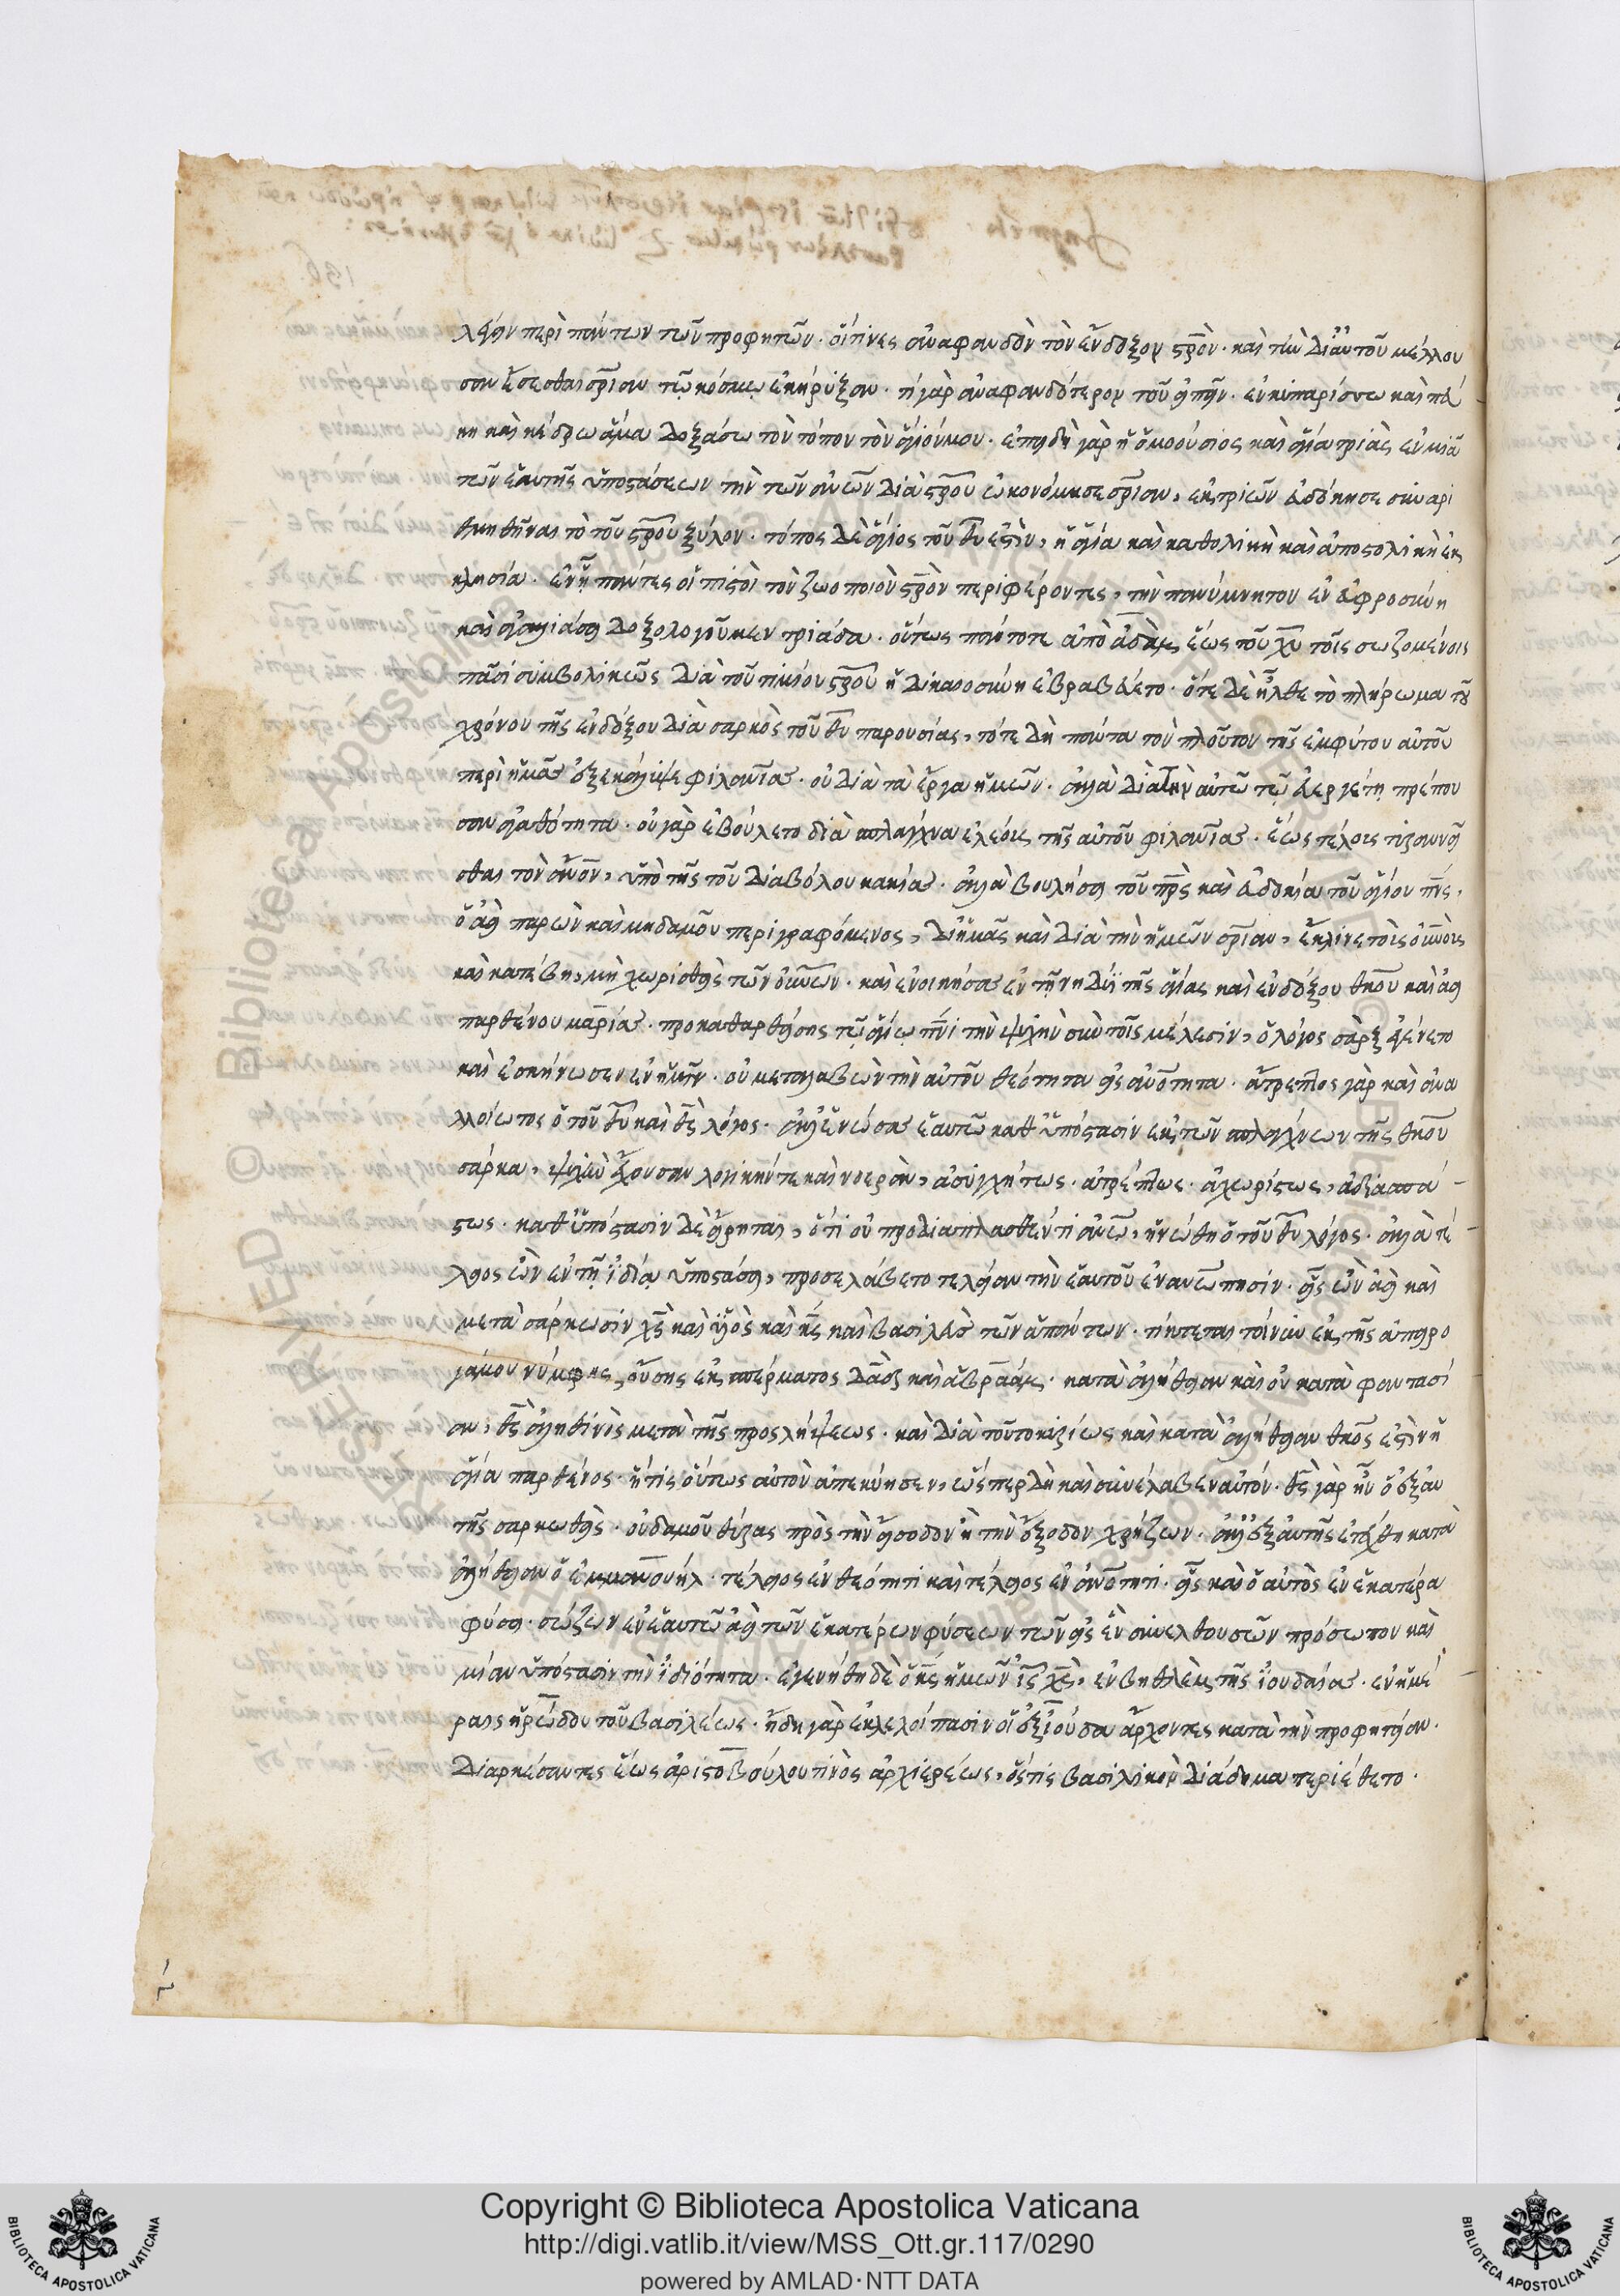 λέγειν περὶ πάντων τῶν προφητῶν. οἵτινες ἀναφανδὸν τὸν ἔνδοξον σ̅ρ̅ὸν. καὶ τὴν δι' αὐτοῦ μέλλου
σαν ἔσεσθαι σ̅ρ̅ίαν τῷ κόσμῳ ἐκήρυξαν. τί γὰρ ἀναφανδότερον τοῦ εἰπεῖν. ἐν κυπαρίσσω καὶ πεύ
κη καὶ κέδρω ἅμα δοξάσω τὸν τόπον τὸν ἅγιόν μου. ἐπειδὴ γὰρ ἡ ὁμοούσιος καὶ ἁγία τριὰς ἐν μιᾶ
τῶν ἑαυτῆς ὑποστάσεων τὴν τῶν α̅ν̅ω̅ν διὰ σ̅ρ̅οῦ ὠκονόμησε σ̅ρ̅ίαν, ἐκ τριῶν εὐδόκησε συναρι
θμηθῆναι τὸ τοῦ σ̅ρ̅οῦ ξύλον. τόπος δὲ ἅγιος τοῦ θ̅υ̅ ἐστὶν, ἡ ἁγία καὶ καθολικὴ καὶ ἀποστολικὴ ἐκ
κλησία. ἐν ᾗ πάντες οἱ πιστοὶ τὸν ζωοποιὸν σ̅ρ̅ὸν περιφέροντες, τὴν πανύμνητον ἐν εὐφροσύνη
καὶ ἀγαλλιάσει δοξολογοῦμεν τριάδα. οὕτως πάντοτε ἀπὸ ἀδὰμ ἕως τοῦ χ̅υ̅ τοῖς σωζομένοις
πᾶσι συμβολικῶς διὰ τοῦ τιμίου σ̅ρ̅οῦ ἡ δικαιοσύνη ἐβραβεύετο. ὅτε δὲ ἦλθε τὸ πλήρωμα τοῦ
χρόνου τῆς ἐνδόξου διὰ σαρκὸς τοῦ θ̅υ̅ παρουσίας, τότε δὴ πάντα τὸν πλοῦτον τῆς ἐμφύτου αὐτοῦ
περὶ ἡμᾶς ἐξεκάλυψε φιλα̅ν̅ίας. οὐ διὰ τὰ ἔργα ἡμῶν. ἀλλὰ διὰ τὴν αὐτῶ τῷ εὐεργέτῃ πρέπου
σαν ἀγαθότητα. οὐ γὰρ ἐβούλετο διὰ σπλάγχνα ἐλέους τῆς αὐτοῦ φιλα̅ν̅ίας. ἕως τέλους τυραννεῖ
σθαι τὸν α̅ν̅ο̅ν, ὑπὸ τῆς τοῦ διαβόλου κακίας. ἀλλὰ βουλήσει τοῦ π̅ρ̅ς̅ καὶ εὐδοκία τοῦ ἁγίου π̅ν̅ς̅,
ὁ ἀεὶ παρὼν καὶ μηδαμοῦ περιγραφόμενος, δι' ἡμᾶς καὶ διὰ τὴν ἡμῶν σ̅ρ̅ίαν, ἔκλινε τοὺς οὐ̅ν̅οὺς
καὶ κατέβη, μὴ χωρισθεὶς τῶν οὐ̅ν̅ων. καὶ ἐνοικήσας ἐν τῇ νηδύϊ τῆς ἁγίας καὶ ἐνδόξου θ̅κ̅ου καὶ ἀεὶ
παρθένου μαρίας. προκαθαρθείσης τῷ ἁγίῳ π̅ν̅ι̅ τὴν ψυχὴν σὺν τοῖς μέλεσιν, ὁ λόγος σὰρξ ἐγένετο
καὶ ἐσκήνωσεν ἐν ἡμῖν. οὐ μεταλαβὼν τὴν αὐτοῦ θεότητα εἰς α̅ν̅ότητα. ἄτρεπτος γὰρ καὶ ἀνα
λλοίωτος ὁ τοῦ θ̅υ̅ καὶ θ̅ς̅ λόγος. ἀλλ' ἑνώσας ἑαυτῶ καθ' ὑπόστασιν ἐκ τῶν σπλάγχνων τῆς θ̅κ̅ου
σάρκα, ψυχὴν ἔχουσαν λογικήν τε καὶ νοερὰν, ἀσυγχύτως. ἀτρέπτως. ἀχωρίστως, ἀδιασπά-
στως. καθ' ὑπόστασιν δὲ εἴρηται, ὅτι οὐ προδιαπλασθέντι α̅ν̅ω̅, ἡνώθη ὁ τοῦ θ̅υ̅ λόγος. ἀλλὰ τέ-
λειος ὢν ἐν τῇ ἰδίᾳ ὑποστάσει, προσελάβετο τελείαν τὴν ἑαυτοῦ ἐναν̅ω̅πησιν. εἷς ὢν ἀεὶ καὶ
μετὰ σάρκωσιν χ̅ς̅ καὶ υἱὸς καὶ κ̅ς̅ καὶ βασιλεὺς τῶν ἁπάντων. τίκτεται τοίνυν ἐκ τῆς ἀπειρο
γάμου νύμφης, οὔσης ἐκ σπέρματος δ̅α̅δ̅ καὶ ἀβραάμ. κατὰ ἀλήθειαν καὶ οὐ κατὰ φαντασί
αν, θ̅ς̅ ἀληθινὸς μετὰ τῆς προσλήψεως. καὶ διὰ τοῦτο κυρίως καὶ κατὰ ἀλήθειαν θ̅κ̅ος ἐστὶν ἡ
ἁγία παρθένος. ἥτις οὕτως αὐτὸν ἀπεκύησεν, ὥσπερ δὴ καὶ συνέλαβεν αὐτόν. θ̅ς̅ γὰρ ἦν ὁ ἐξ αὐ
τῆς σαρκωθείς. οὐδαμοῦ θύρας πρὸς τὴν εἴσοδον ἢ τὴν ἔξοδον χρήζων. ἀλλ' ἐξ αὐτῆς ἐτέχθη κατὰ
ἀλήθειαν ὁ ἐμμανουήλ. τέλειος ἐν θεότητι καὶ τέλειος ἐν α̅ν̅ότητι. εἷς καὶ ὁ αὐτὸς ἐν ἑκατέρα
φύσει. σώζων ἐν ἑαυτῶ ἀεὶ τῶν ἑκατέρων φύσεων τῶν εἰς ἓν συνελθουσῶν πρόσωπον καὶ
μίαν ὑπόστασιν τὴν ἰδιότητα. ἐγεννήθη δὲ ὁ κ̅ς̅ ἡμῶν ι̅ς̅ χ̅ς̅, ἐν βηθλεὲμ τῆς ἰουδαίας. ἐν ἡμέ
ραις ἡρώδου τοῦ βασιλέως. ἤδη γὰρ ἐκλελοίπασιν οἱ ἐξ ἰούδα ἄρχοντες κατὰ τὴν προφητείαν.
διαρκέσαντες ἕως ἀριστοβούλου τινὸς ἀρχιερέως, ὅστις βασιλικὸν διάδημα περιέθετο.
Copyright © Biblioteca Apostolica Vaticana
http://digi.vatlib.it/view/MSS_Ott.gr.117/0290
powered by AMLAD·NTT DATA